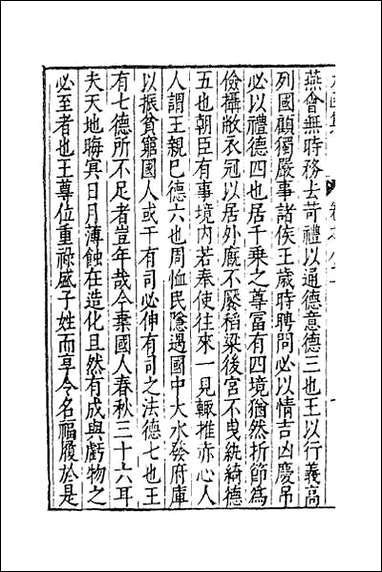 燕會無時務去苛禮以通德意德三也王以行義高
列國顧獨嚴事諸侯王歲時聘問必以情吉凶慶弔
必以禮德四也居千乗之尊冨有四境猶然折節為
儉攝敝衣冠以居外廐不饜稻粱後宮不曳紈綺德
五也朝臣有事境内若奉使往來一見輙推赤心人
人謂王親已德六也周恤民隱遇國中大水發府庫
以振貧窮國人或干有司必伸有司之法德七也王
有七德所不足者豈年哉今棄國人春秋三十六耳
夫天地晦冥日月薄蝕在造化且然有成與虧物之
必至者也王尊位重祿盛子姓而享令名福履於是